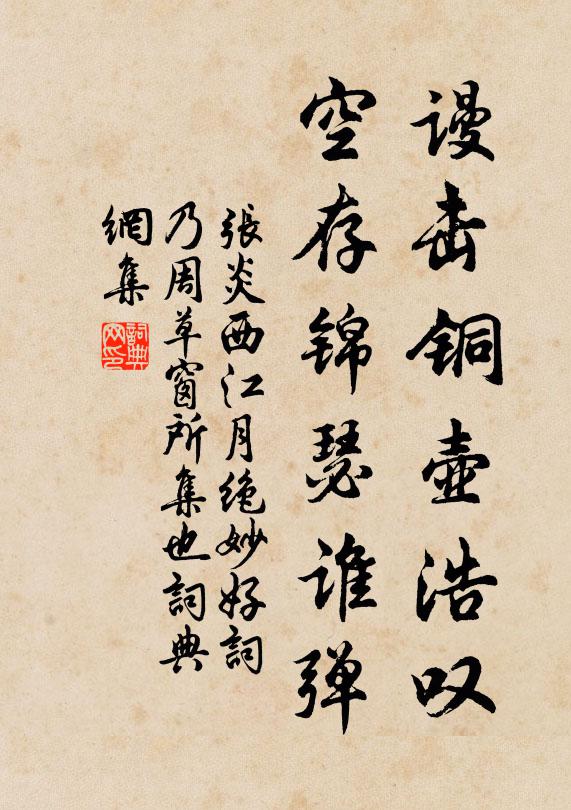 谩击铜壶浩叹
空存锦瑟谁弹
張炎西江月绝妙好詞
乃周草窗所集也詞典
網集
詞典网印